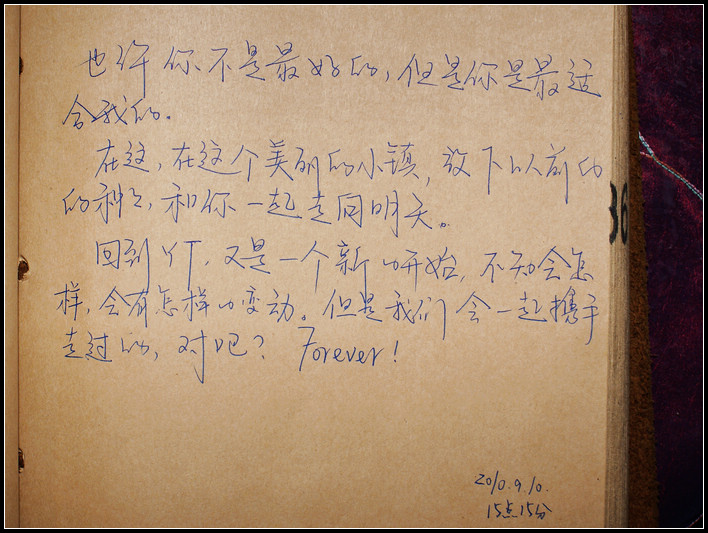 也许你不是最好的，但是你是最适
合我的。
在这，在这个美丽的小镇，放下以前的
的种种，和你一起走向明天。
回到YT，又是一个新的开始，不知会怎
样，会有怎样的变动。但是我们会一起携手
走过的，对吧？ Forever！
2010.9.10.
15点15分
36